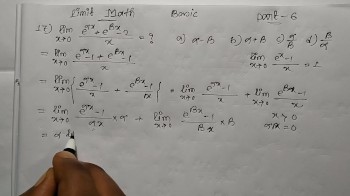 Limit Math Basic Part-6
17) lim x→0 (e^αx + e^βx - 2)/x = ? a) α-β b) α+β c) α/β d) β/α
= lim x→0 (e^αx - 1 + e^βx - 1)/x lim x→0 (e^x - 1)/x = 1
= lim x→0 {(e^αx - 1)/x + (e^βx - 1)/x} = lim x→0 (e^αx - 1)/x + lim x→0 (e^βx - 1)/x
= lim x→0 (e^αx - 1)/αx × α + lim x→0 (e^βx - 1)/βx × β x→0
= α